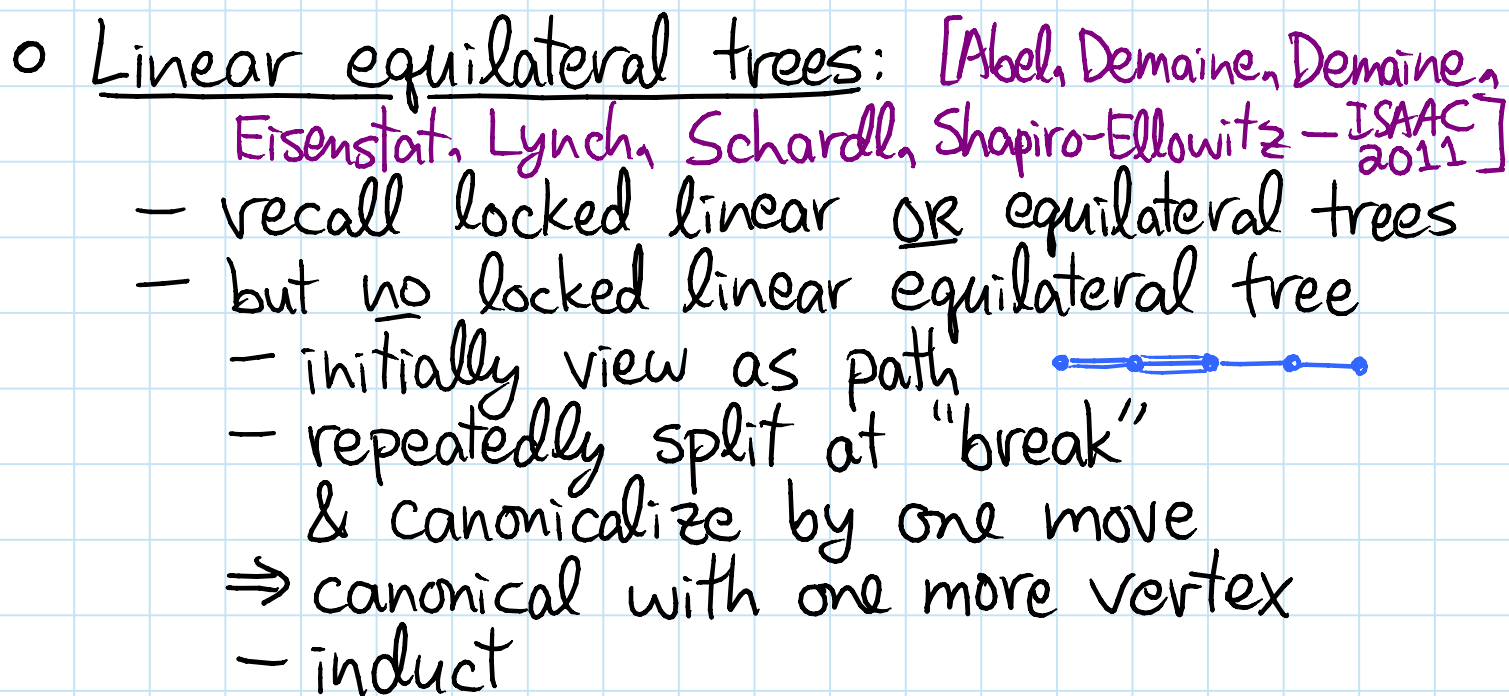 o Linear equilateral trees: [Abel, Demaine, Demaine,
Eisenstat, Lynch, Schardl, Shapiro-Ellowitz – ISAAC 2011]
– recall locked linear OR equilateral trees
– but no locked linear equilateral tree
– initially view as path
– repeatedly split at "break"
& canonicalize by one move
⇒ canonical with one more vertex
– induct